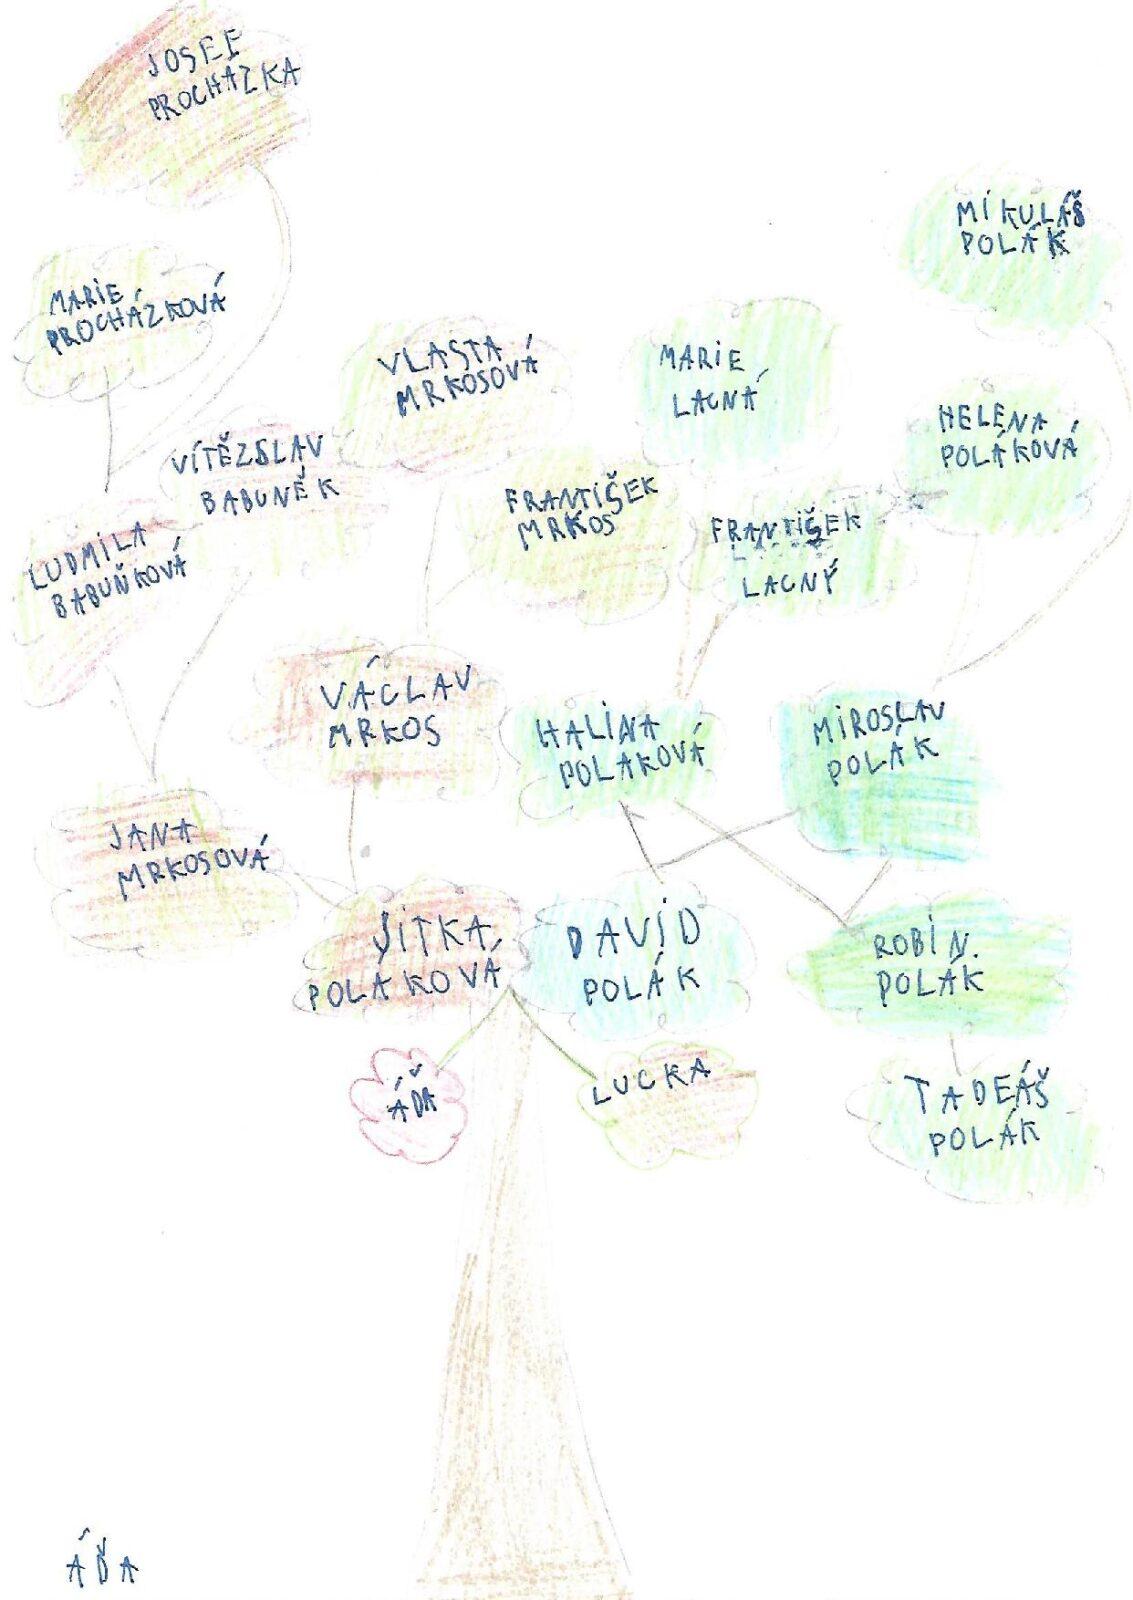 JOSEF
PROCHÁZKA
MIKULÁŠ
POLÁK
MARIE
PROCHÁZKOVÁ
VLASTA
MRKOSOVÁ
MARIE
LACNÁ
HELENA
POLÁKOVÁ
VÍTĚZSLAV
BABUNĚK
FRANTIŠEK
MRKOS
FRANTIŠEK
LACNÝ
LUDMILA
BABUŇKOVÁ
VÁCLAV
MRKOS
HALINA
POLAKOVÁ
MIROSLAV
POLÁK
JANA
MRKOSOVÁ
JITKA
POLAKOVÁ
DAVID
POLÁK
ROBIN.
POLÁK
ÁĎA
LUCKA
TADEÁŠ
POLÁK
ÁĎA